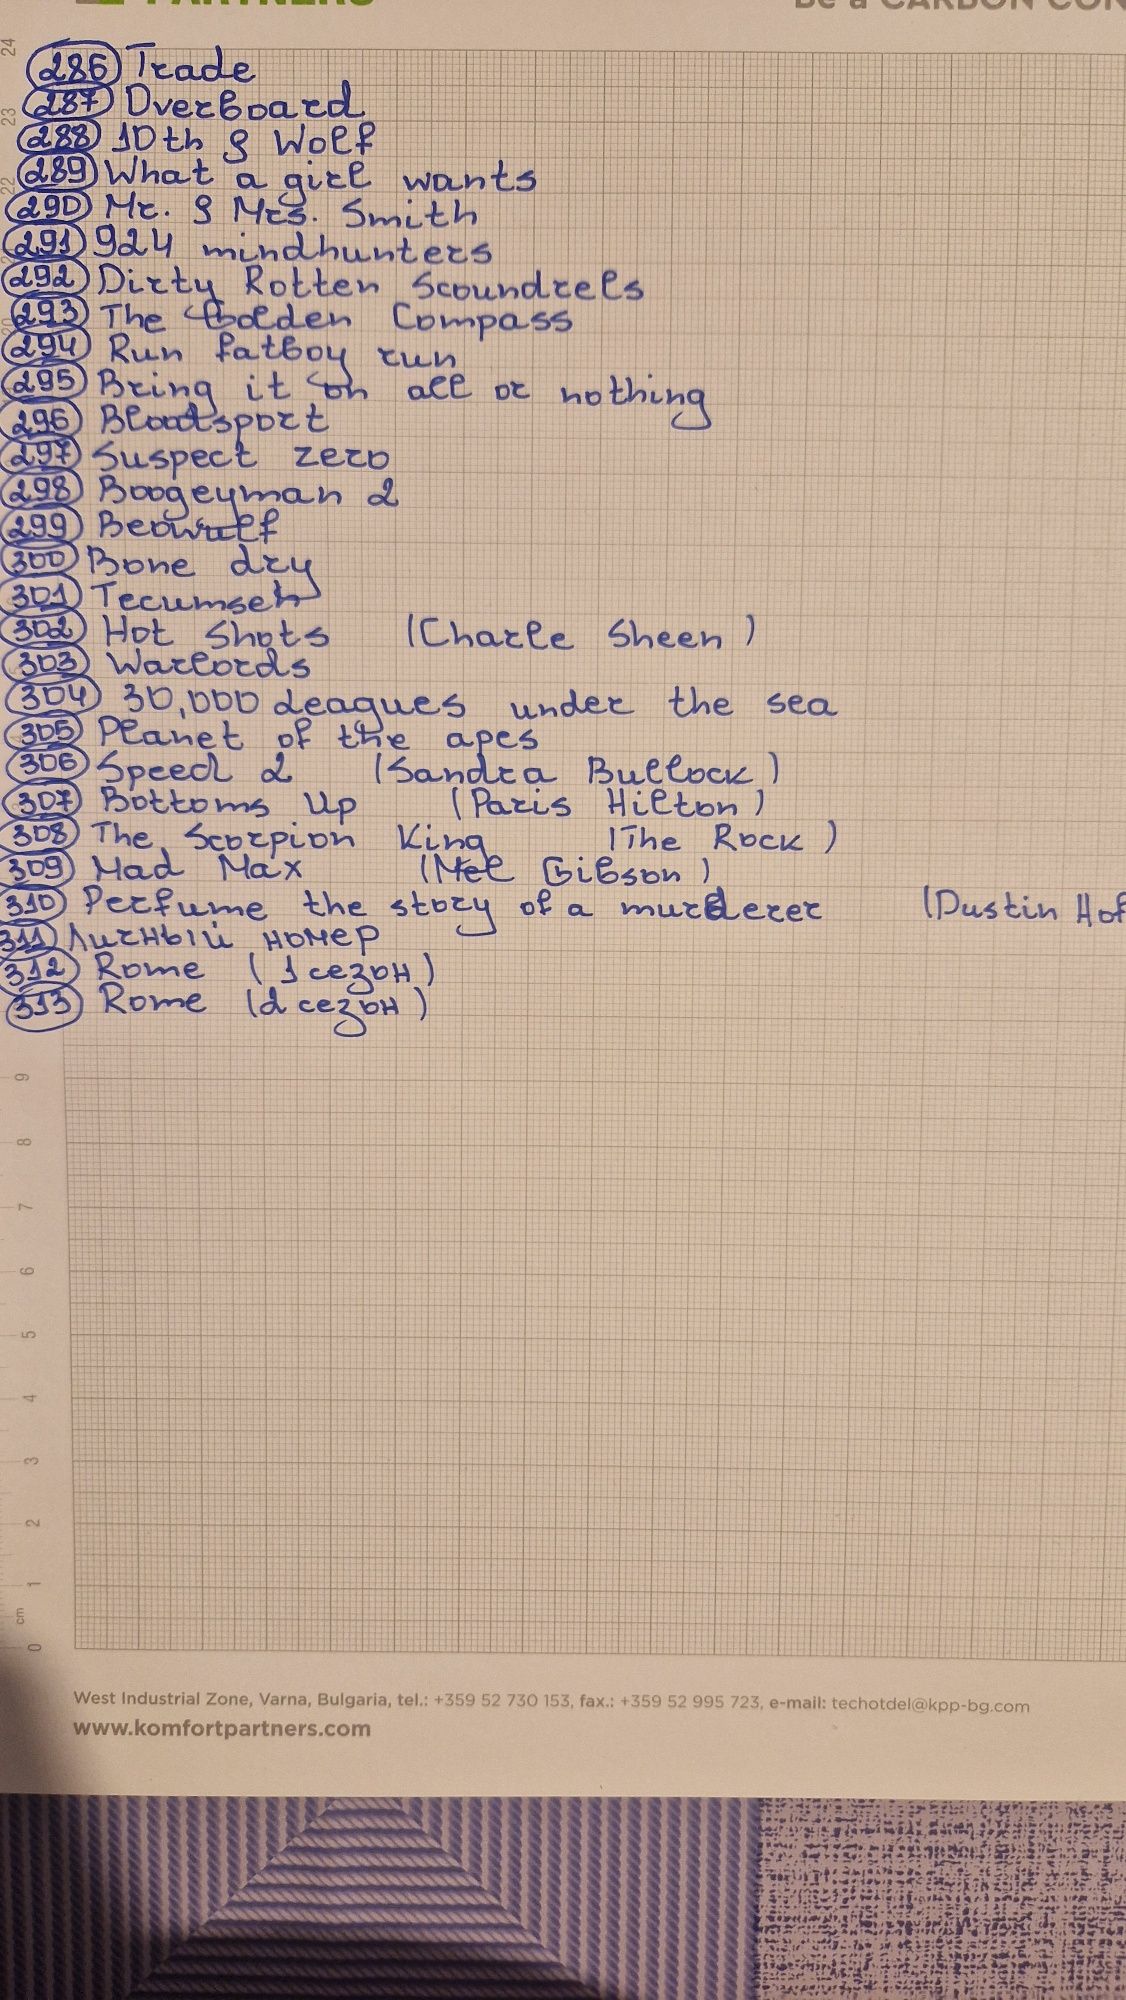 PARTNERS
Be a CARBON CON
286 Trade
287 Overboard
288 10th & Wolf
289 What a girl wants
290 Mr. & Mrs. Smith
291 924 mindhunters
292 Dirty Rotten Scoundrels
293 The Golden Compass
294 Run fatboy run
295 Bring it on all or nothing
296 Bloodsport
297 Suspect zero
298 Boogeyman 2
299 Beowulf
300 Bone dry
301 Tecumseh
302 Hot Shots (Charle Sheen)
303 Warlords
304 30,000 Leagues under the sea
305 Planet of the apes
306 Speed 2 (Sandra Bullock)
307 Bottoms Up (Paris Hilton)
308 The Scorpion King (The Rock)
309 Mad Max (Mel Gibson)
310 Perfume the story of a murderer (Dustin Hof
311 Личный номер
312 Rome (1 сезон)
313 Rome (2 сезон)
24
23
22
9
8
7
6
5
4
3
2
1
cm
0
West Industrial Zone, Varna, Bulgaria, tel.: +359 52 730 153, fax.: +359 52 995 723, e-mail: techotdel@kpp-bg.com
www.komfortpartners.com